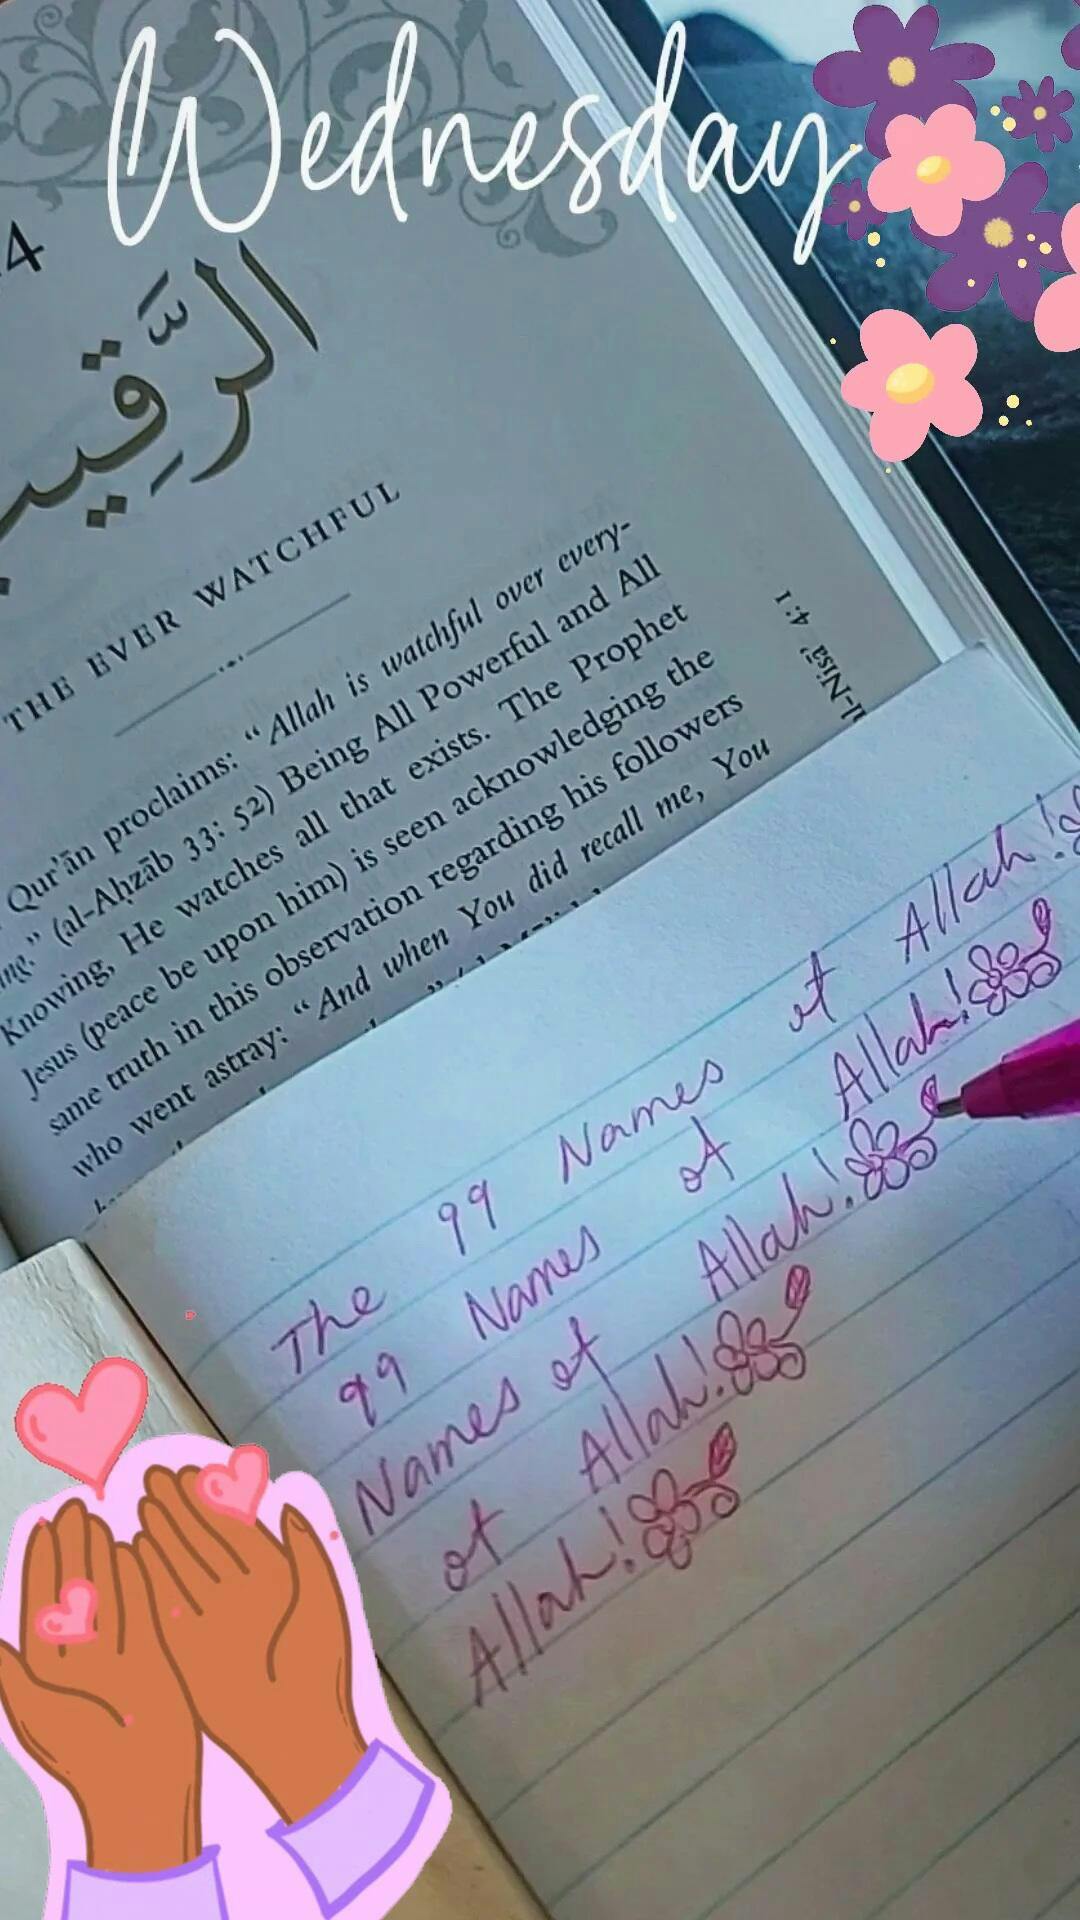 Wednesday
4
الرَّقِيب
THE EVER WATCHFUL
Qur'ān proclaims: "Allah is watchful over every-
ing." (al-Aḥzāb 33: 52) Being All Powerful and All
Knowing, He watches all that exists. The Prophet
Jesus (peace be upon him) is seen acknowledging the
same truth in this observation regarding his followers
who went astray: "And when You did recall me, You
l-Nisā' 4: 1
The 99 Names of Allah!
99 Names of Allah!
Names of Allah!
of Allah!
Allah!